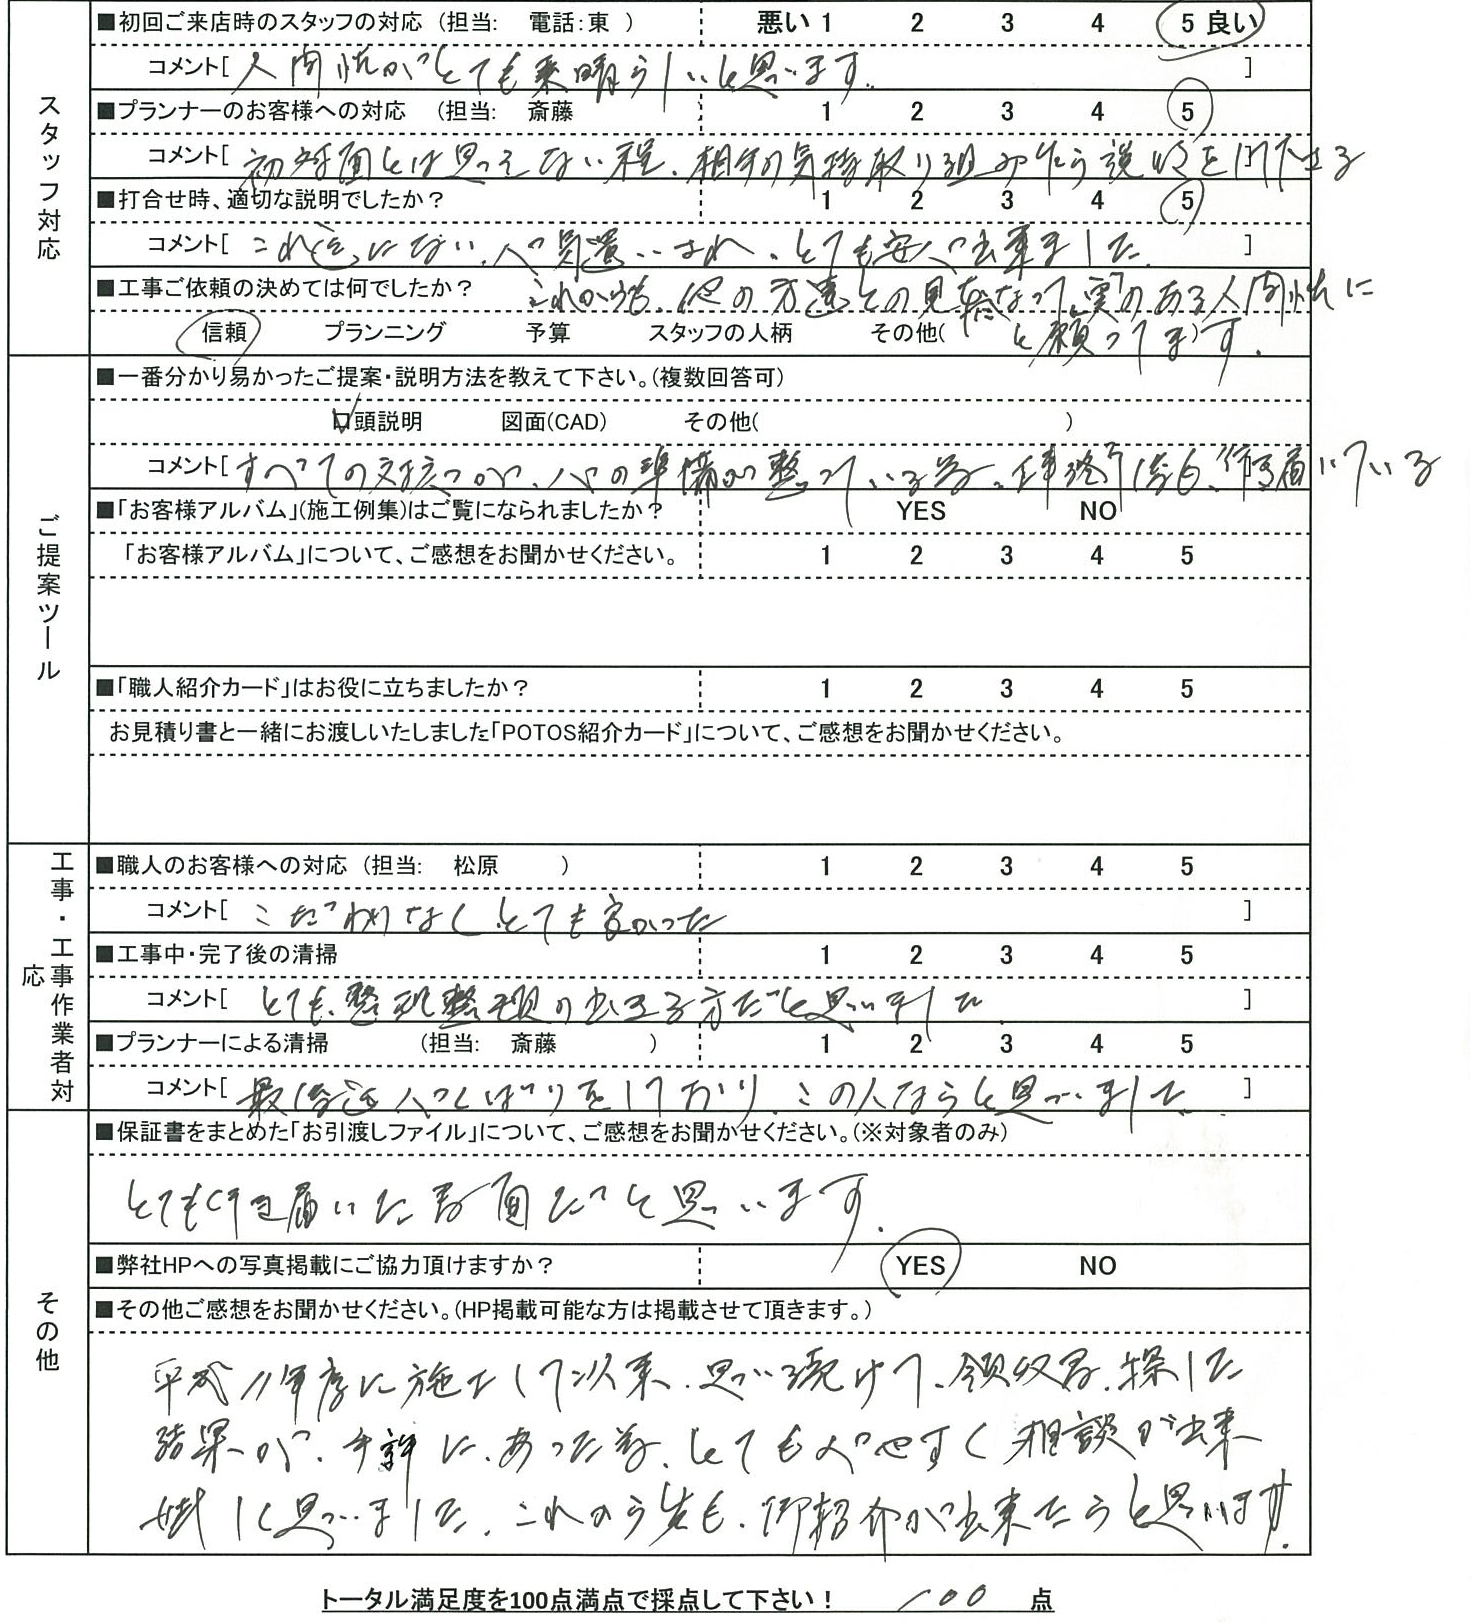 スタッフ対応
■初回ご来店時のスタッフの対応 (担当: 電話:東 ) 悪い 1 2 3 4 5 良い
コメント[ 人間性がとても素晴らしいと思います。 ]
■プランナーのお客様への対応 (担当: 斎藤 1 2 3 4 5
コメント[ 初対面とは思えない程、相手の気持 取り組み 説明を
■打合せ時、適切な説明でしたか? 1 2 3 4 5
コメント[ これ迄にない、心気遣いされ、とても安心出来ました。 ]
■工事ご依頼の決めては何でしたか? これからも、他の方達との見本になって、実のある人間性に
信頼 プランニング 予算 スタッフの人柄 その他( と願ってます。 )
ご提案ツール
■一番分かり易かったご提案・説明方法を教えて下さい。(複数回答可)
口頭説明 図面(CAD) その他( )
コメント[ すべての対応が、心の準備が整っている為、工事終了後も、行き届いている
■「お客様アルバム」(施工例集)はご覧になられましたか? YES NO
「お客様アルバム」について、ご感想をお聞かせください。 1 2 3 4 5
■「職人紹介カード」はお役に立ちましたか? 1 2 3 4 5
お見積り書と一緒にお渡しいたしました「POTOS紹介カード」について、ご感想をお聞かせください。
工事・工事作業者対応
■職人のお客様への対応 (担当: 松原 ) 1 2 3 4 5
コメント[ こだわりなく、とても良かった ]
■工事中・完了後の清掃 1 2 3 4 5
コメント[ とても、整理整頓の出来る方だと思いました ]
■プランナーによる清掃 (担当: 斎藤 ) 1 2 3 4 5
コメント[ 最後迄 をしており、この人ならと思いました。 ]
その他
■保証書をまとめた「お引渡しファイル」について、ご感想をお聞かせください。(※対象者のみ)
とても行き届いた書面だと思います。
■弊社HPへの写真掲載にご協力頂けますか? YES NO
■その他ご感想をお聞かせください。(HP掲載可能な方は掲載させて頂きます。)
平成11年度に施工して以来、思い続けて、領収書、探した
結果が、手許に、あった為、とても心やすく相談が出来
嬉しく思いました。これから先も、御紹介が出来たらと思います。
トータル満足度を100点満点で採点して下さい! 100 点